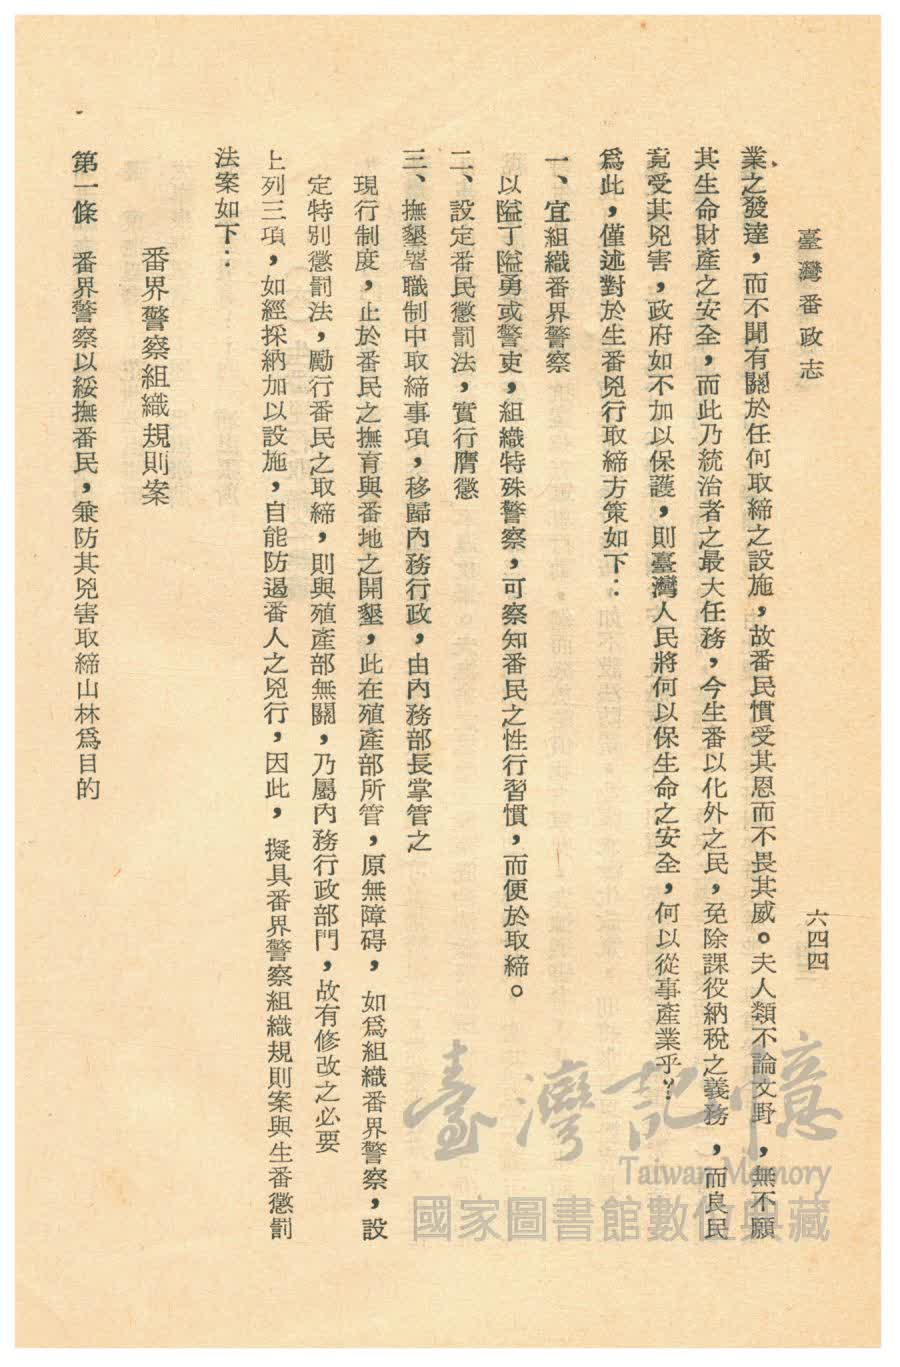 臺灣番政志
六四四
業之發達，而不聞有關於任何取締之設施，故番民慣受其恩而不畏其威。夫人類不論文野，無不願
其生命財產之安全，而此乃統治者之最大任務，今生番以化外之民，免除課役納稅之義務，而良民
竟受其兇害，政府如不加以保護，則臺灣人民將何以保生命之安全，何以從事產業乎？
爲此，僅述對於生番兇行取締方策如下：
一、宜組織番界警察
以隘丁隘勇或警吏，組織特殊警察，可察知番民之性行習慣，而便於取締。
二、設定番民懲罰法，實行膺懲
三、撫墾署職制中取締事項，移歸內務行政，由內務部長掌管之
現行制度，止於番民之撫育與番地之開墾，此在殖產部所管，原無障碍，如爲組織番界警察，設
定特別懲罰法，勵行番民之取締，則與殖產部無關，乃屬內務行政部門，故有修改之必要
上列三項，如經採納加以設施，自能防遏番人之兇行，因此，擬具番界警察組織規則案與生番懲罰
法案如下：
番界警察組織規則案
第一條　番界警察以綏撫番民，兼防其兇害取締山林爲目的
臺灣記憶
Taiwan Memory
國家圖書館數位典藏